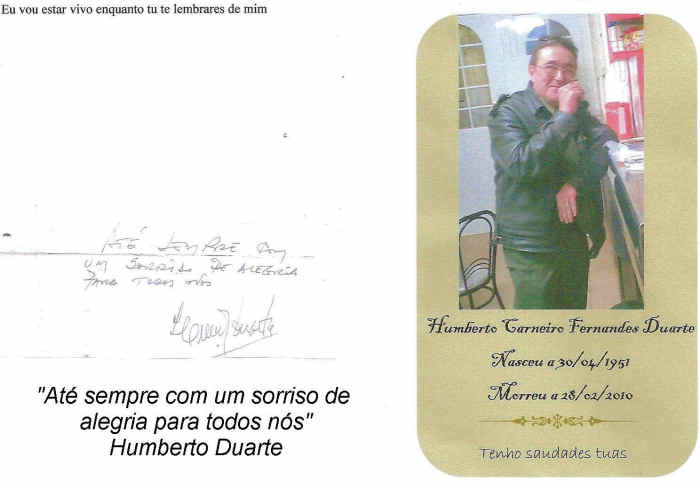 Eu vou estar vivo enquanto tu te lembrares de mim
Até sempre com
um sorriso de alegria
para todos nós
Duarte
"Até sempre com um sorriso de
alegria para todos nós"
Humberto Duarte
Humberto Carneiro Fernandes Duarte
Nasceu a 30/04/1951
Morreu a 28/02/2010
Tenho saudades tuas